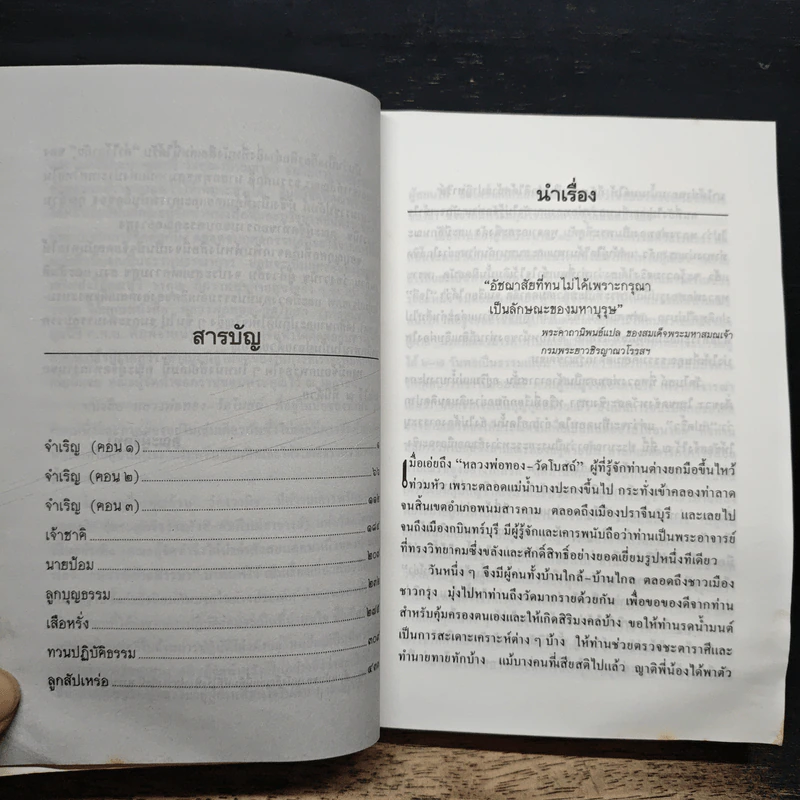 สารบัญ
จำเริญ (ตอน ๑)
จำเริญ (ตอน ๒)
จำเริญ (ตอน ๓)
เจ้าชาติ
นายป้อม
ลูกบุญธรรม
เสือหรั่ง
ทวนปฏิบัติธรรม
ลูกสัปเหร่อ
นำเรื่อง
“อัชฌาสัยที่ทนไม่ได้เพราะกรุณา
เป็นลักษณะของมหาบุรุษ”
พระคาถานิพนธ์แปล ของสมเด็จพระมหาสมณเจ้า
กรมพระยาวชิรญาณวโรรสฯ
เมื่อเอ่ยถึง “หลวงพ่อทอง-วัดโบสถ์” ผู้ที่รู้จักท่านต่างยกมือขึ้นไหว้
ท่วมหัว เพราะตลอดแม่น้ำบางปะกงขึ้นไป กระทั่งเข้าคลองท่าลาด
จนสิ้นเขตอำเภอพนมสารคาม ตลอดถึงเมืองปราจีนบุรี และเลยไป
จนถึงเมืองกบินทร์บุรี มีผู้รู้จักและเคารพนับถือว่าท่านเป็นพระอาจารย์
ที่ทรงวิทยาคมซึ่งขลังและศักดิ์สิทธิ์อย่างยอดเยี่ยมรูปหนึ่งทีเดียว
วันหนึ่ง ๆ จึงมีผู้คนทั้งบ้านใกล้-บ้านไกล ตลอดถึงชาวเมือง
ชาวกรุง มุ่งไปหาท่านถึงวัดมากรายด้วยกัน เพื่อขอของดีจากท่าน
สำหรับคุ้มครองตนเองและให้เกิดสิริมงคลบ้าง ขอให้ท่านรดน้ำมนต์
เป็นการสะเดาะเคราะห์ต่าง ๆ บ้าง ให้ท่านช่วยตรวจชะตาราศีและ
ทำนายทายทักบ้าง แม้บางคนที่เสียสติไปแล้ว ญาติพี่น้องได้พาตัว